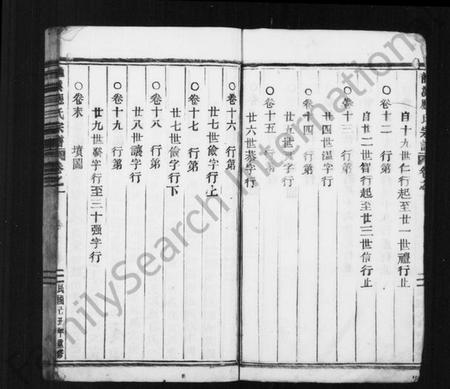 自十九世仁行起至廿一世禮行止
〇卷十二 行第
自廿二世智行起至廿三世信行止
〇卷十三 行第
廿四世溫字行
〇卷十四 行第
廿五世字行
〇卷十五
廿六世恭字行
〇卷十六 行第
廿七世儉字行上
〇卷十七 行第
廿七世儉字行下
〇卷十八 行第
廿八世讓字行
〇卷十九 行第
廿九世字行至三十强字行
〇卷末 墳圖
氏宗譜
民國己丑年重修
FamilySearch International